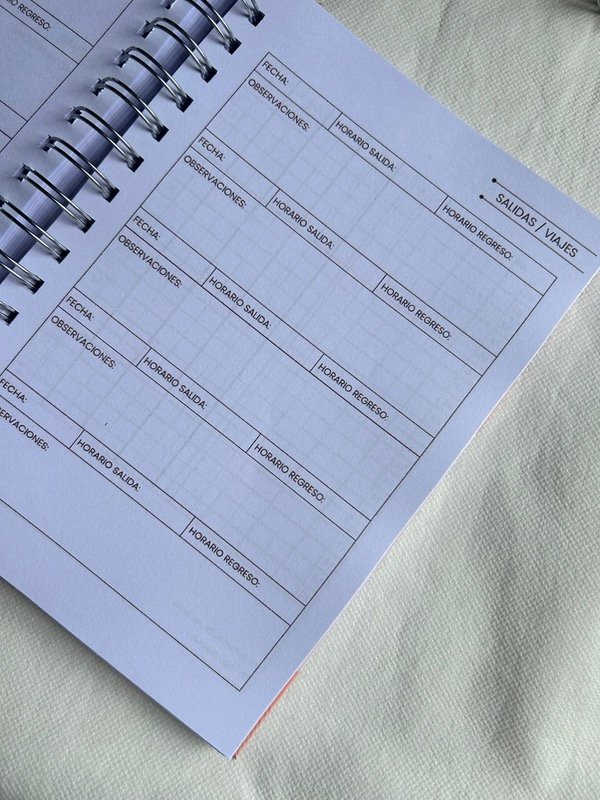 REGRESO:
SALIDAS / VIAJES
FECHA: HORARIO SALIDA: HORARIO REGRESO:
OBSERVACIONES:
FECHA: HORARIO SALIDA: HORARIO REGRESO:
OBSERVACIONES:
FECHA: HORARIO SALIDA: HORARIO REGRESO:
OBSERVACIONES:
FECHA: HORARIO SALIDA: HORARIO REGRESO:
OBSERVACIONES:
FECHA: HORARIO SALIDA: HORARIO REGRESO:
ERVACIONES: